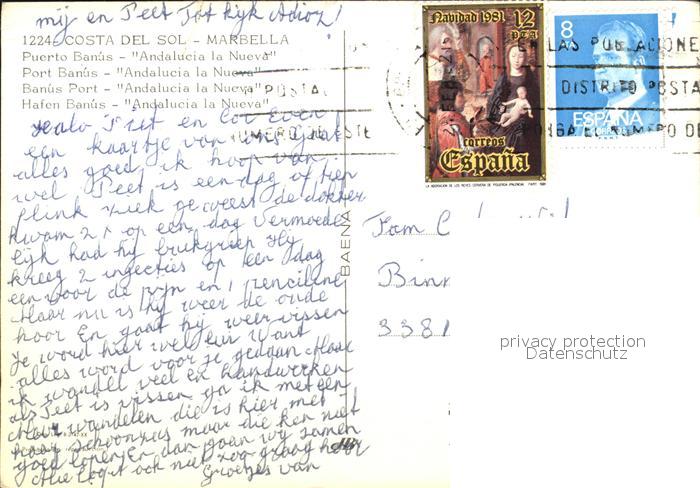 mij en Peet Tot kijk Adioz!
1224. COSTA DEL SOL - MARBELLA
Puerto Banús - "Andalucia la Nueva"
Port Banús - "Andalucia la Nueva"
Banús Port - "Andalucia la Nueva"
Hafen Banús - "Andalucia la Nueva"
Navidad 1981 12 PTA
correos
España
8
ESPAÑA
CORREOS
EN LAS POBLACIONE
DISTRITO POSTA
PONGA EL NUMERO DE
POSTAL
NUMERO DE ESTE
Halo Piet en Cor Even
een kaartje van ons gaat
alles goed ik hoop van
wel Peet is een dag of tien
flink ziek geweest de dokter
kwam 2 x op een dag vermoede
lijk had hij buikgriep Hij
kreeg 2 ingecties op een dag
een voor de pijn en 1 penciline
Maar nu is hij weer de oude
hoor En gaat hij weer vissen
Je word hier wel lui want
alles word voor je gedaan Maar
ik wandel veel en handwerken
als Peet is vissen ga ik met een
wandelen die is hier met
haar schoonzus maar die ken niet
goed lopen En dan gaan wij samen
ook niet zo graag hoor
Groetjes van
BAENA
Fam C
Binn
3381
privacy protection
Datenschutz